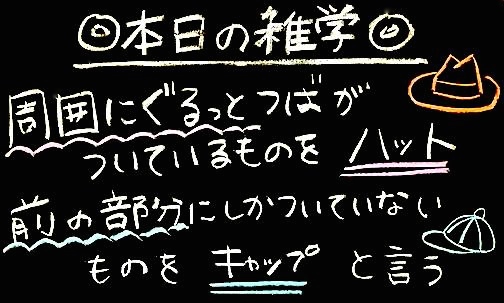 ◎本日の雑学◎
周囲にぐるっとつばが
ついているものを ハット
前の部分にしかついていない
ものを キャップ と言う